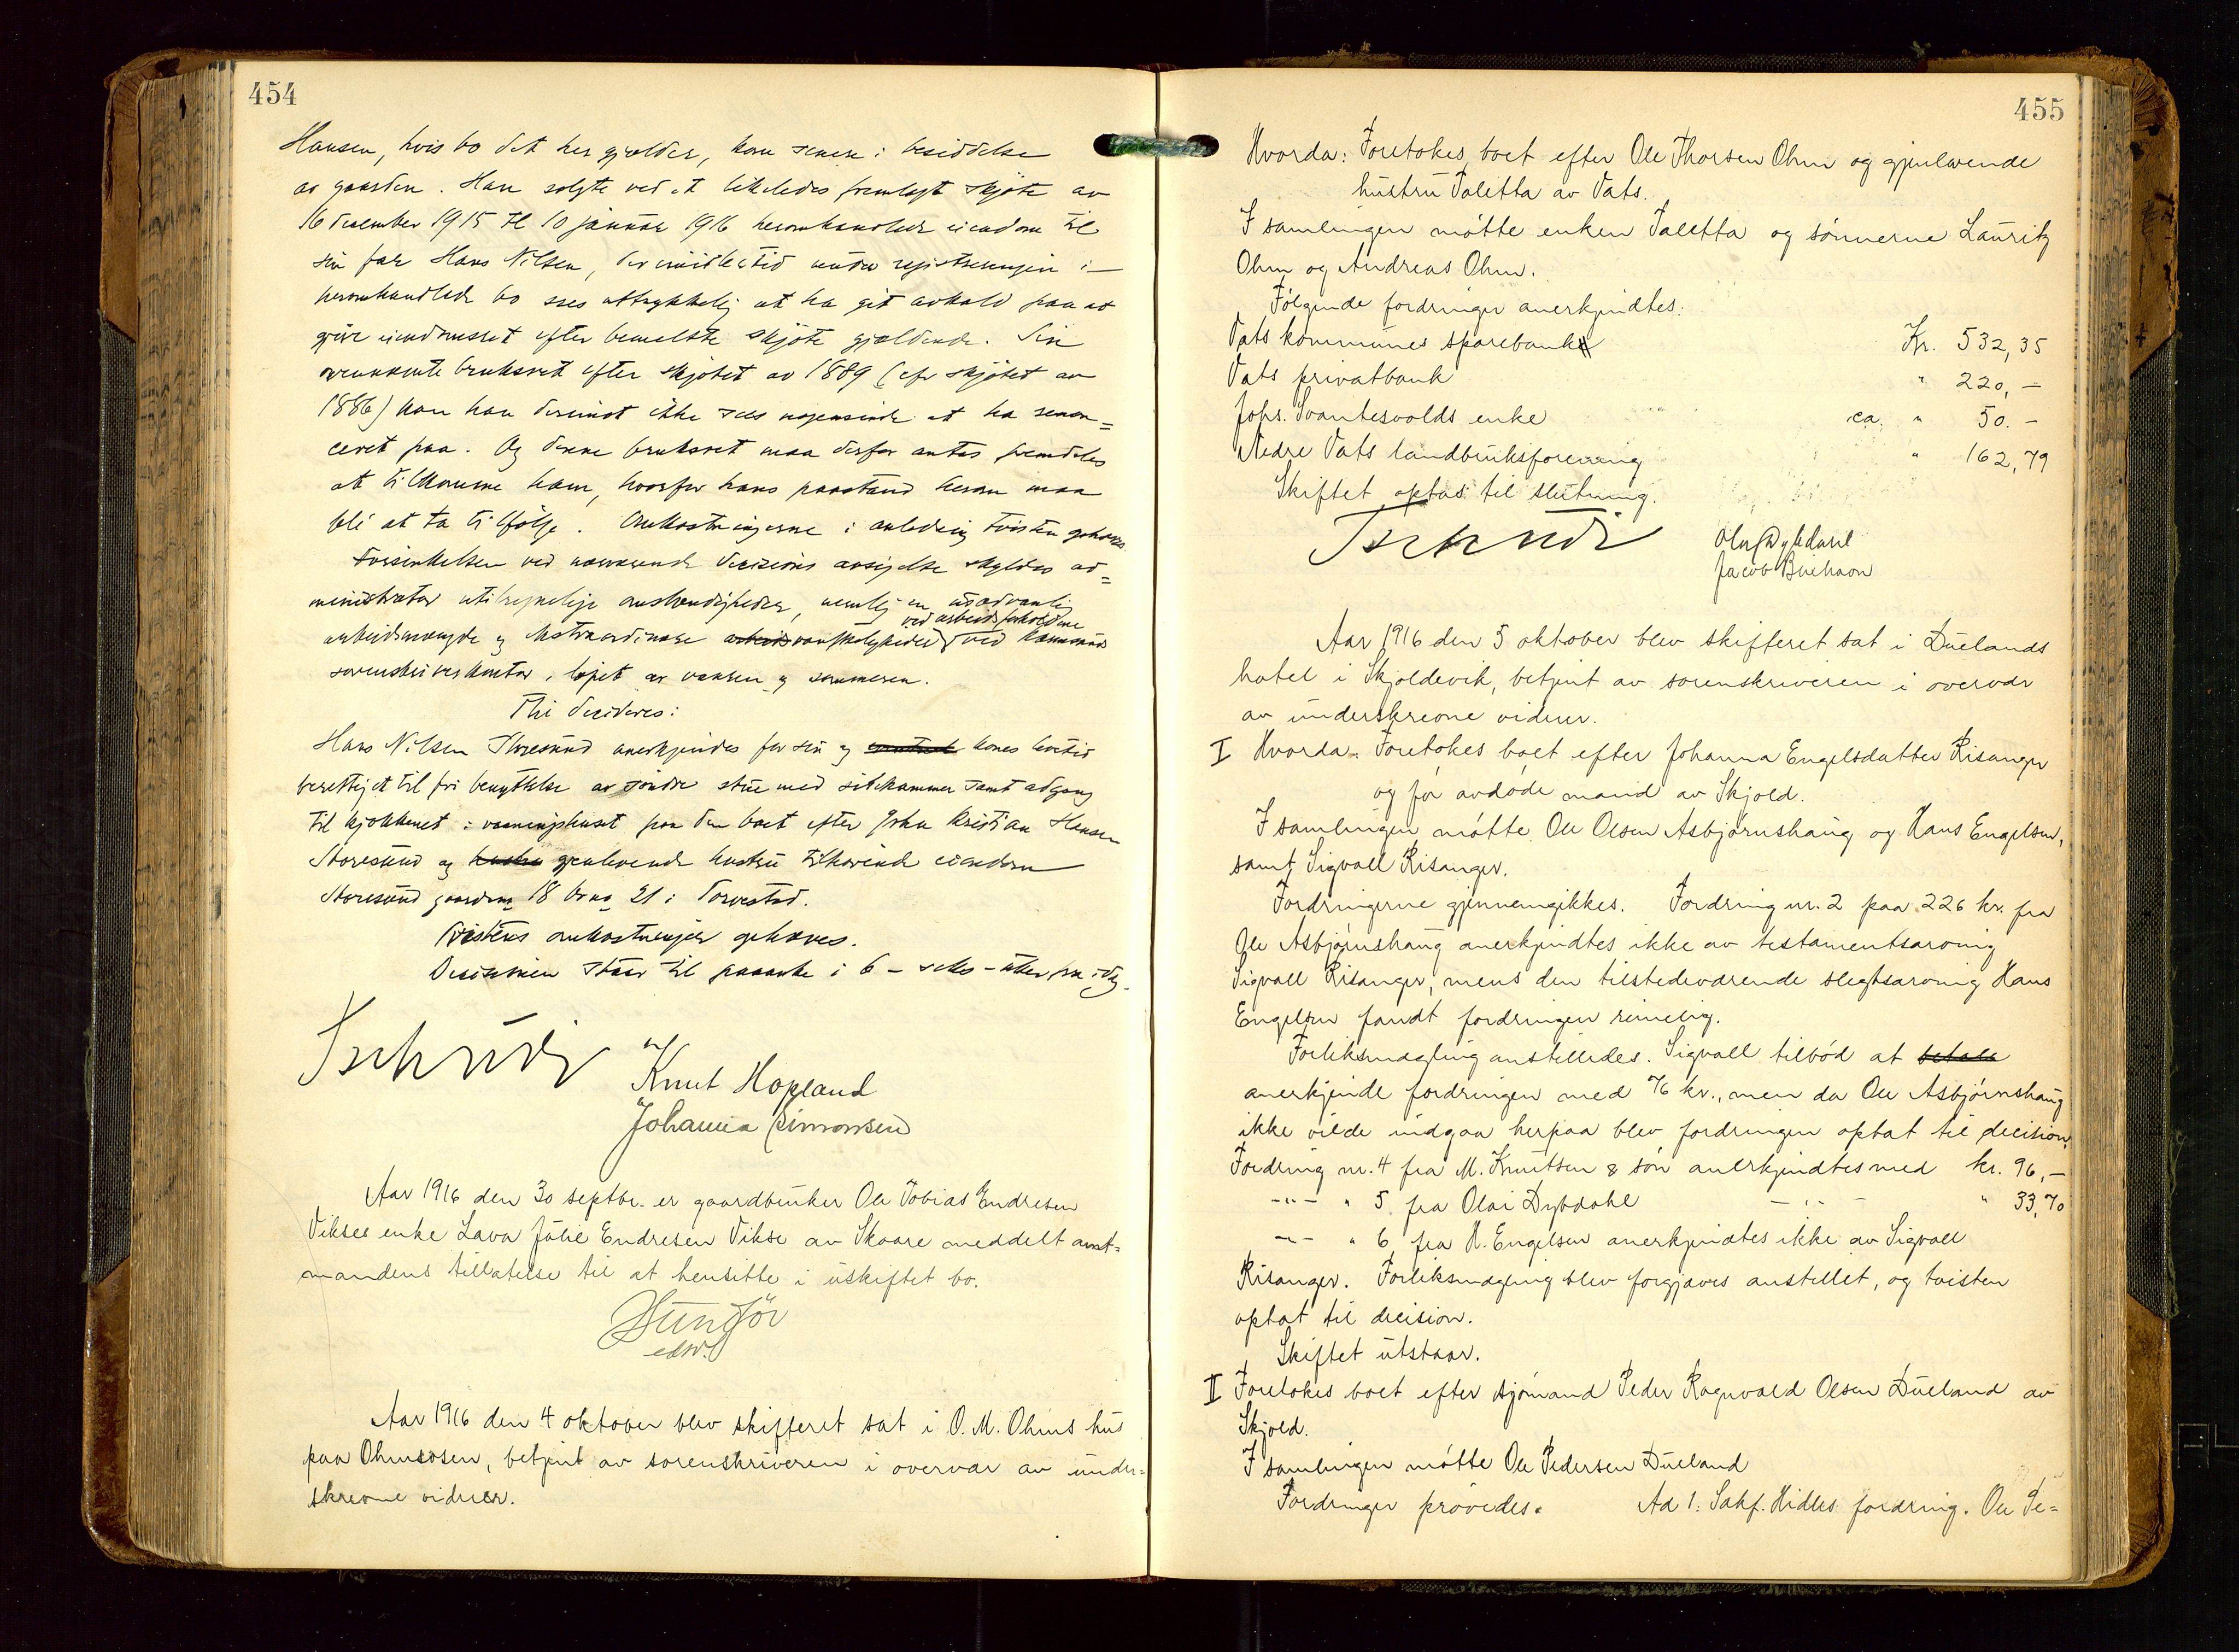 454
Hansen, hvis bo det her gjælder, kom senere i besiddelse
av gaarden. Han solgte ved et likeledes fremlagt skjøte av
16 december 1915 tl 10 januar 1916 heromhandlede eiendom til
sin far Hans Nilsen, der imidlertid under registreringen i
heromhandlede bo sees uttrykkelig at ha git avkald paa at
gjøre eiendomsret efter bemeldte skjøte gjældende. Sin
ovennævnte bruksret efter skjøtet av 1889 (cfr skjøtet av
1886) kan han derimot ikke sees nogensinde at ha renon=
ceret paa. Og denne bruksret maa derfor antas fremdeles
at tilkomme ham, hvorfor hans paastand herom maa
bli at ta tilfølge. Omkostningerne i anledning tvisten ophæves.
Forsinkelsen ved nærværende decisions avsigelse skyldes ad=
ministrator utilregnelige omstændigheder, nemlig en usædvanlig
arbeidsmængde og ekstraordinære vanskeligheder ved arbeidsforholdene ved Karmsunds
sorenskriverkontor i løpet av vaaren og sommeren.
Thi decideres:
Hans Nilsen Storesund anerkjendes for sin og kones levetid
berettiget til fri benyttelse av søndre stue med sidekammer samt adgang
til kjøkkenet i vaaningshuset paa den boet efter John Kristian Hansen
Storesund og gjenlevende hustru tilhørende eiendom
Storesund gaardsno 18 brno 21 i Torvestad.
Tvistens omkostninger ophæves.
Decisionen staar til paaanke i 6 - seks - uker fra idag.
Tschudi
Knut Hopland
Johanna Simonsen
Aar 1916 den 30 septbr. er gaardbruker Ole Tobias Endresen
Vikses enke Lava Julie Endresen Vikse av Skaare meddelt amt=
mandens tillatelse til at hensitte i uskiftet bo.
edsv.
Aar 1916 den 4 oktober blev skifteret sat i O. M. Ohms hus
paa Ohmsosen, betjent av sorenskriveren i overvær av under=
skrevne vidner.
455
Hvorda: Foretokes boet efter Ole Thorsen Ohm og gjenlevende
hustru Taletta av Vats.
I samlingen møtte enken Taletta og sønnerne Lauritz
Ohm og Andreas Ohm.
Følgende fordringer anerkjendtes:
Vats kommunes sparebank Kr. 532,35
Vats privatbank " 220,-
Johs. Svantesvolds enke ca. " 50.-
Nedre Vats landbruksforening " 162,79
Skiftet optas til slutning.
Tschudi
Jacob
Aar 1916 den 5 oktober blev skifteret sat i Duelands
hotel i Skjoldevik, betjent av sorenskriveren i overvær
av underskrevne vidner.
I Hvorda: Foretokes boet efter Johanna Engelsdatter Risanger
og før avdøde mand av Skjold.
I samlingen møtte Ole Olsen Asbjørnshaug og Hans Engelsen,
samt Sigvall Risanger.
Fordringerne gjennemgikkes. Fordring nr. 2 paa 226 kr. fra
Ole Asbjørnshaug anerkjendtes ikke av testamentsarving
Sigvall Risanger, mens den tilstedeværende slegtsarving Hans
Engelsen fandt fordringen rimelig.
Forliksmægling anstilledes. Sigvall tilbød at betale
anerkjende fordringen med 76 kr., men da Ole Asbjørnshaug
ikke vilde indgaa herpaa blev fordringen optat til decision.
Fordring nr. 4 fra M. Knutsen & søn anerkjendtes med kr. 96,-
-"- " 5 fra Olai Dybdahl -"- " 33,70
-"- " 6 fra H. Engelsen anerkjendtes ikke av Sigvall
Risanger. Forliksmægling blev forgjæves anstillet, og tvisten
optat til decision.
Skiftet utstaar.
II Foretokes boet efter sjømand Peder Ragnvald Olsen Dueland av
Skjold.
I samlingen møtte Ole Pedersen Dueland
Fordringer prøvedes. Ad 1: Sakf. Hidles fordring. Ole Pe=